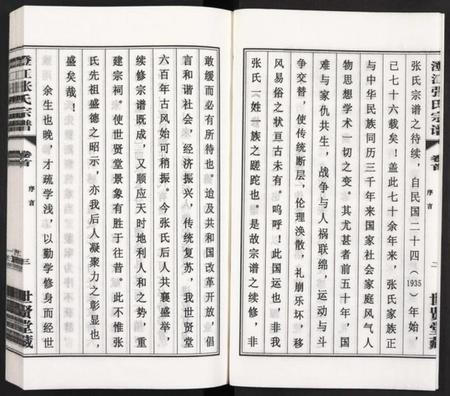 澄江张氏宗谱
卷首
序言
二
世贤堂藏
张氏宗谱之待续，自民国二十四（1935）年始，
已七十六载矣！盖此七十余年来，张氏家族正
与中华民族同历三千年来国家社会家庭风气人
物思想学术一切之变。其尤甚者前五十年，国
难与家仇共生，战争与人祸联绵，运动与斗
争交替，使传统断层，伦理涣散，礼崩乐坏，移
风易俗之状亘古未有。呜呼！此国运也，非我
张氏一姓一族之蹉跎也。是故宗谱之续修，非
敢缓而必有所待也。迨及共和国改革开放，倡
言和谐社会，经济振兴，传统复苏，我世贤堂
六百年古风始可稍扬。今张氏后人共襄盛举，
续修宗谱既成，又顺应天时地利人和之势，重
建宗祠，使世贤堂景象有胜于往昔。此不惟张
氏先祖盛德之昭示，亦我后人凝聚力之彰显也，
盛矣哉！
余生也晚，才疏学浅，以勤学修身而经世
澄江张氏宗谱
卷首
序言
三
世贤堂藏